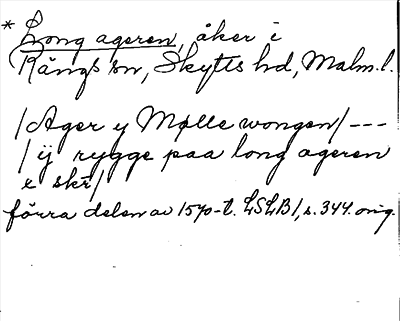 * Long ageren, åker i
Rängs sn, Skytts hd, Malm. l.
/Ager y Mølle wongen/ ---
/ij rygge paa long ageren
e skr/
förra delen av 1570-t. LSLB1, s. 344. orig.